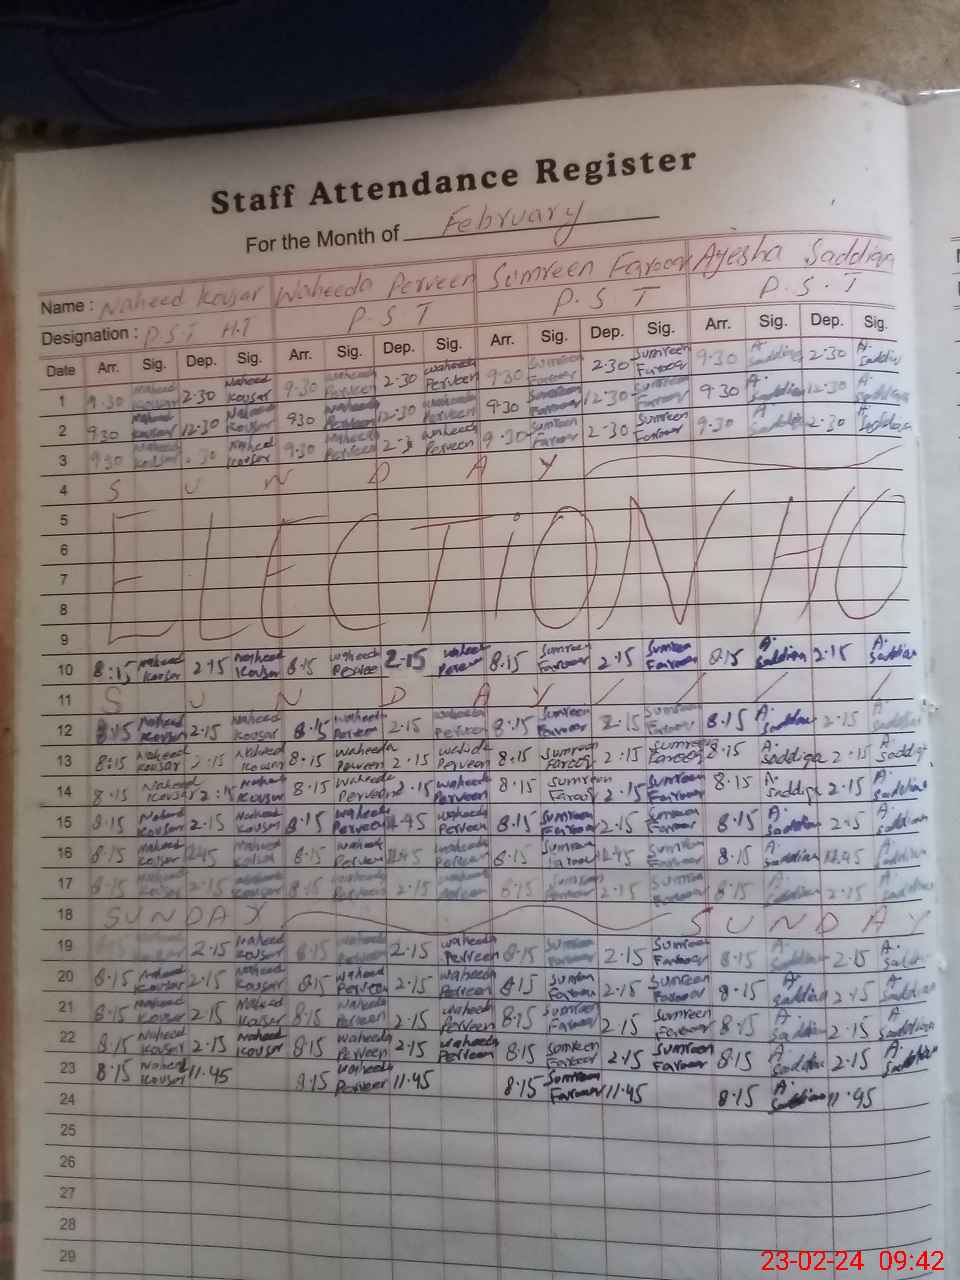 Staff Attendance Register
For the Month of February
Name : Naheed Kousar Waheeda Perveen Sumreen Farooq Ayesha Saddiqa
Designation : P.S.T H.T P.S.T P.S.T P.S.T
Date Arr. Sig. Dep. Sig. Arr. Sig. Dep. Sig. Arr. Sig. Dep. Sig. Arr. Sig. Dep. Sig.
1 9.30 Naheed Kousar 2.30 Naheed Kousar 9.30 Waheeda Perveen 2.30 Waheeda Perveen 9.30 Sumreen Farooq 2.30 Sumreen Farooq 9.30 A. Saddiqa 2.30 A. Saddiqa
2 930 Naheed Kousar 12.30 Naheed Kousar 930 Waheeda Perveen 12.30 Waheeda Perveen 9.30 Sumreen Farooq 12.30 Sumreen Farooq 9.30 A. Saddiqa 12.30 A. Saddiqa
3 930 Naheed Kousar .30 Naheed Kousar 9.30 Waheeda Perveen 2.3 Waheeda Perveen 9.30 Sumreen Farooq 2.30 Sumreen Farooq 9.30 A Saddiqa 2.30 A. Saddiqa
4 S U N D A Y
5
6
7 ELECTION HO
8
9
10 8:15 Naheed Kousar 2.15 Naheed Kousar 8.15 Waheeda Perveen 2.15 Waheeda Perveen 8.15 Sumreen Farooq 2.15 Sumreen Farooq 8.15 A. Saddiqa 2.15 A. Saddiqa
11 S U N D A Y
12 8.15 Naheed Kousar 2.15 Naheed Kousar 8.15 Waheeda Perveen 2.15 Waheeda Perveen 8.15 Sumreen Farooq 2.15 Sumreen Farooq 8.15 A. Saddiqa 2.15 A. Saddiqa
13 8:15 Naheed Kousar 2.15 Naheed Kousar 8.15 Waheeda Perveen 2.15 Waheeda Perveen 8.15 Sumreen Farooq 2.15 Sumreen Farooq 8.15 A. Saddiqa 2.15 A. Saddiqa
14 8.15 Naheed Kousar 2:15 Naheed Kousar 8.15 Waheeda Perveen 2.15 Waheeda Perveen 8.15 Sumreen Farooq 2.15 Sumreen Farooq 8.15 A. Saddiqa 2.15 A. Saddiqa
15 8.15 Naheed Kousar 2.15 Naheed Kousar 8.15 Waheeda Perveen Waheeda Perveen 8.15 Sumreen Farooq 2.15 Sumreen Farooq 8.15 A. Saddiqa 2.15 A. Saddiqa
16 8.15 Naheed Kousar Naheed Kousar 8.15 Waheeda Perveen Waheeda Perveen 8.15 Sumreen Farooq Sumreen Farooq 8.15 A. Saddiqa A. Saddiqa
17 8.15 Naheed Kousar 2.15 Naheed Kousar 8.15 Waheeda Perveen 2.15 Waheeda Perveen 8.15 Sumreen Farooq 2.15 Sumreen Farooq 8.15 A. Saddiqa 2.15 A. Saddiqa
18 SUNDAY SUNDAY
19 2.15 Naheed Kousar 8.15 Waheeda Perveen 2.15 Waheeda Perveen 8.15 Sumreen Farooq 2.15 Sumreen Farooq 8.15 A. Saddiqa 2.15 A. Saddiqa
20 8.15 Naheed Kousar 2.15 Naheed Kousar 8.15 Waheeda Perveen 2.15 Waheeda Perveen 8.15 Sumreen Farooq 2.15 Sumreen Farooq 8.15 A Saddiqa 2.15 A. Saddiqa
21 8.15 Naheed Kousar 2.15 Naheed Kousar 8.15 Waheeda Perveen 2.15 Waheeda Perveen 8.15 Sumreen Farooq 2.15 Sumreen Farooq 8.15 A. Saddiqa 2.15 A. Saddiqa
22 8.15 Naheed Kousar 2.15 Naheed Kousar 8.15 Waheeda Perveen 2.15 Waheeda Perveen 8.15 Sumreen Farooq 2.15 Sumreen Farooq 8.15 A Saddiqa 2.15 A. Saddiqa
23 8.15 Naheed Kousar 11.45 8.15 Waheeda Perveen 11.45 8.15 Sumreen Farooq 11.45 8.15 A. Saddiqa 11.45
24
25
26
27
28
29
23-02-24 09:42